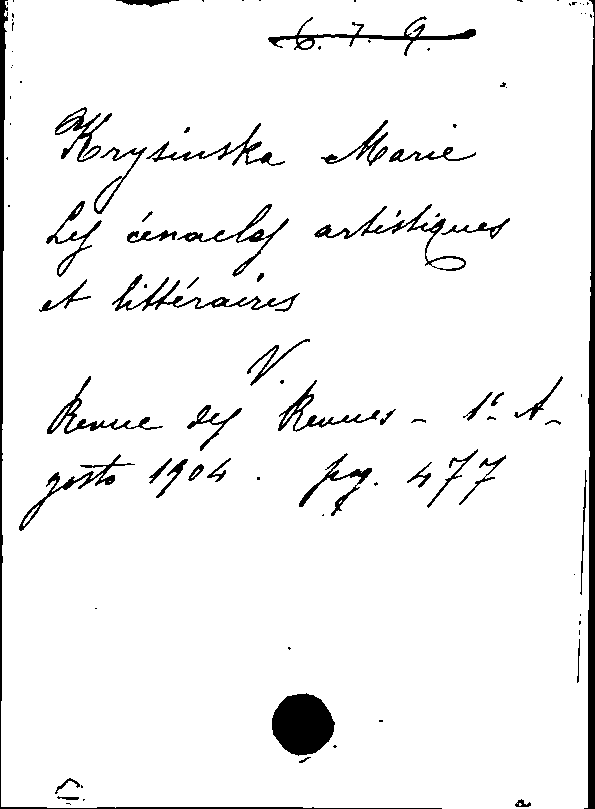 6. 7. 9.
Krysinska Marie
Les cénacles artistiques
et littéraires
V.
Revue des Revues - 1º A-
gosto 1904. pag. 477